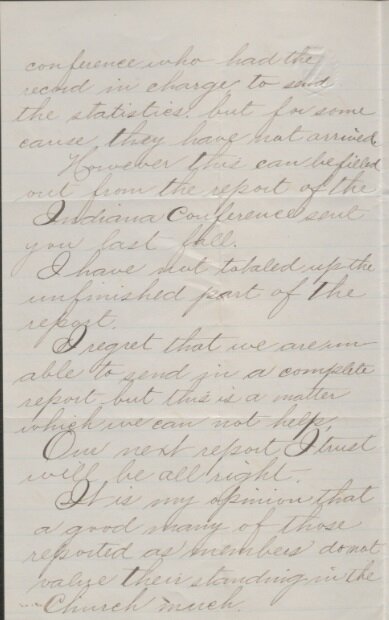 conference who had the
record in charge to send
the statistics. but for some
cause they have not arrived.
However this can be filled
out from the report of the
Indiana Conference sent
you last fall.
I have not totaled up the
unfinished part of the
report.
I regret that we are un-
able to send in a complete
report but this is a matter
which we can not help.
Our next report I trust
will be all right.
It is my opinion that
a good many of those
reported as members do not
value their standing in the
Church much.